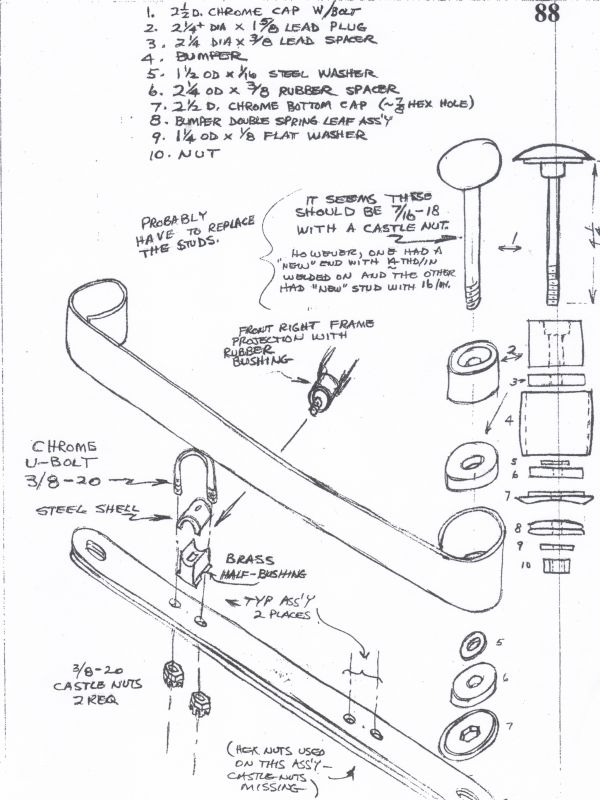 88
1. 2½ D. CHROME CAP W/BOLT
2. 2¼+ DIA x 1⅝ LEAD PLUG
3. 2¼ DIA x ⅜ LEAD SPACER
4. BUMPER
5. 1½ OD x 1/16 STEEL WASHER
6. 2¼ OD x ⅜ RUBBER SPACER
7. 2½ D. CHROME BOTTOM CAP (~⅞ HEX HOLE)
8. BUMPER DOUBLE SPRING LEAF ASS'Y
9. 1¼ OD x ⅛ FLAT WASHER
10. NUT
PROBABLY
HAVE TO REPLACE
THE STUDS.
IT SEEMS THESE
SHOULD BE 7/16-18
WITH A CASTLE NUT.
HOWEVER, ONE HAD A
"NEW" END WITH THD/IN
WELDED ON AND THE OTHER
HAD "NEW" STUD WITH 16/IN.
1
FRONT RIGHT FRAME
PROJECTION WITH
RUBBER
BUSHING
2
3
4
5
6
7
8
9
10
CHROME
U-BOLT
3/8-20
STEEL SHELL
BRASS
HALF-BUSHING
TYP ASS'Y
2 PLACES
3/8-20
CASTLE NUTS
2 REQ
5
6
7
(HEX NUTS USED
ON THIS ASS'Y-
CASTLE NUTS
MISSING)